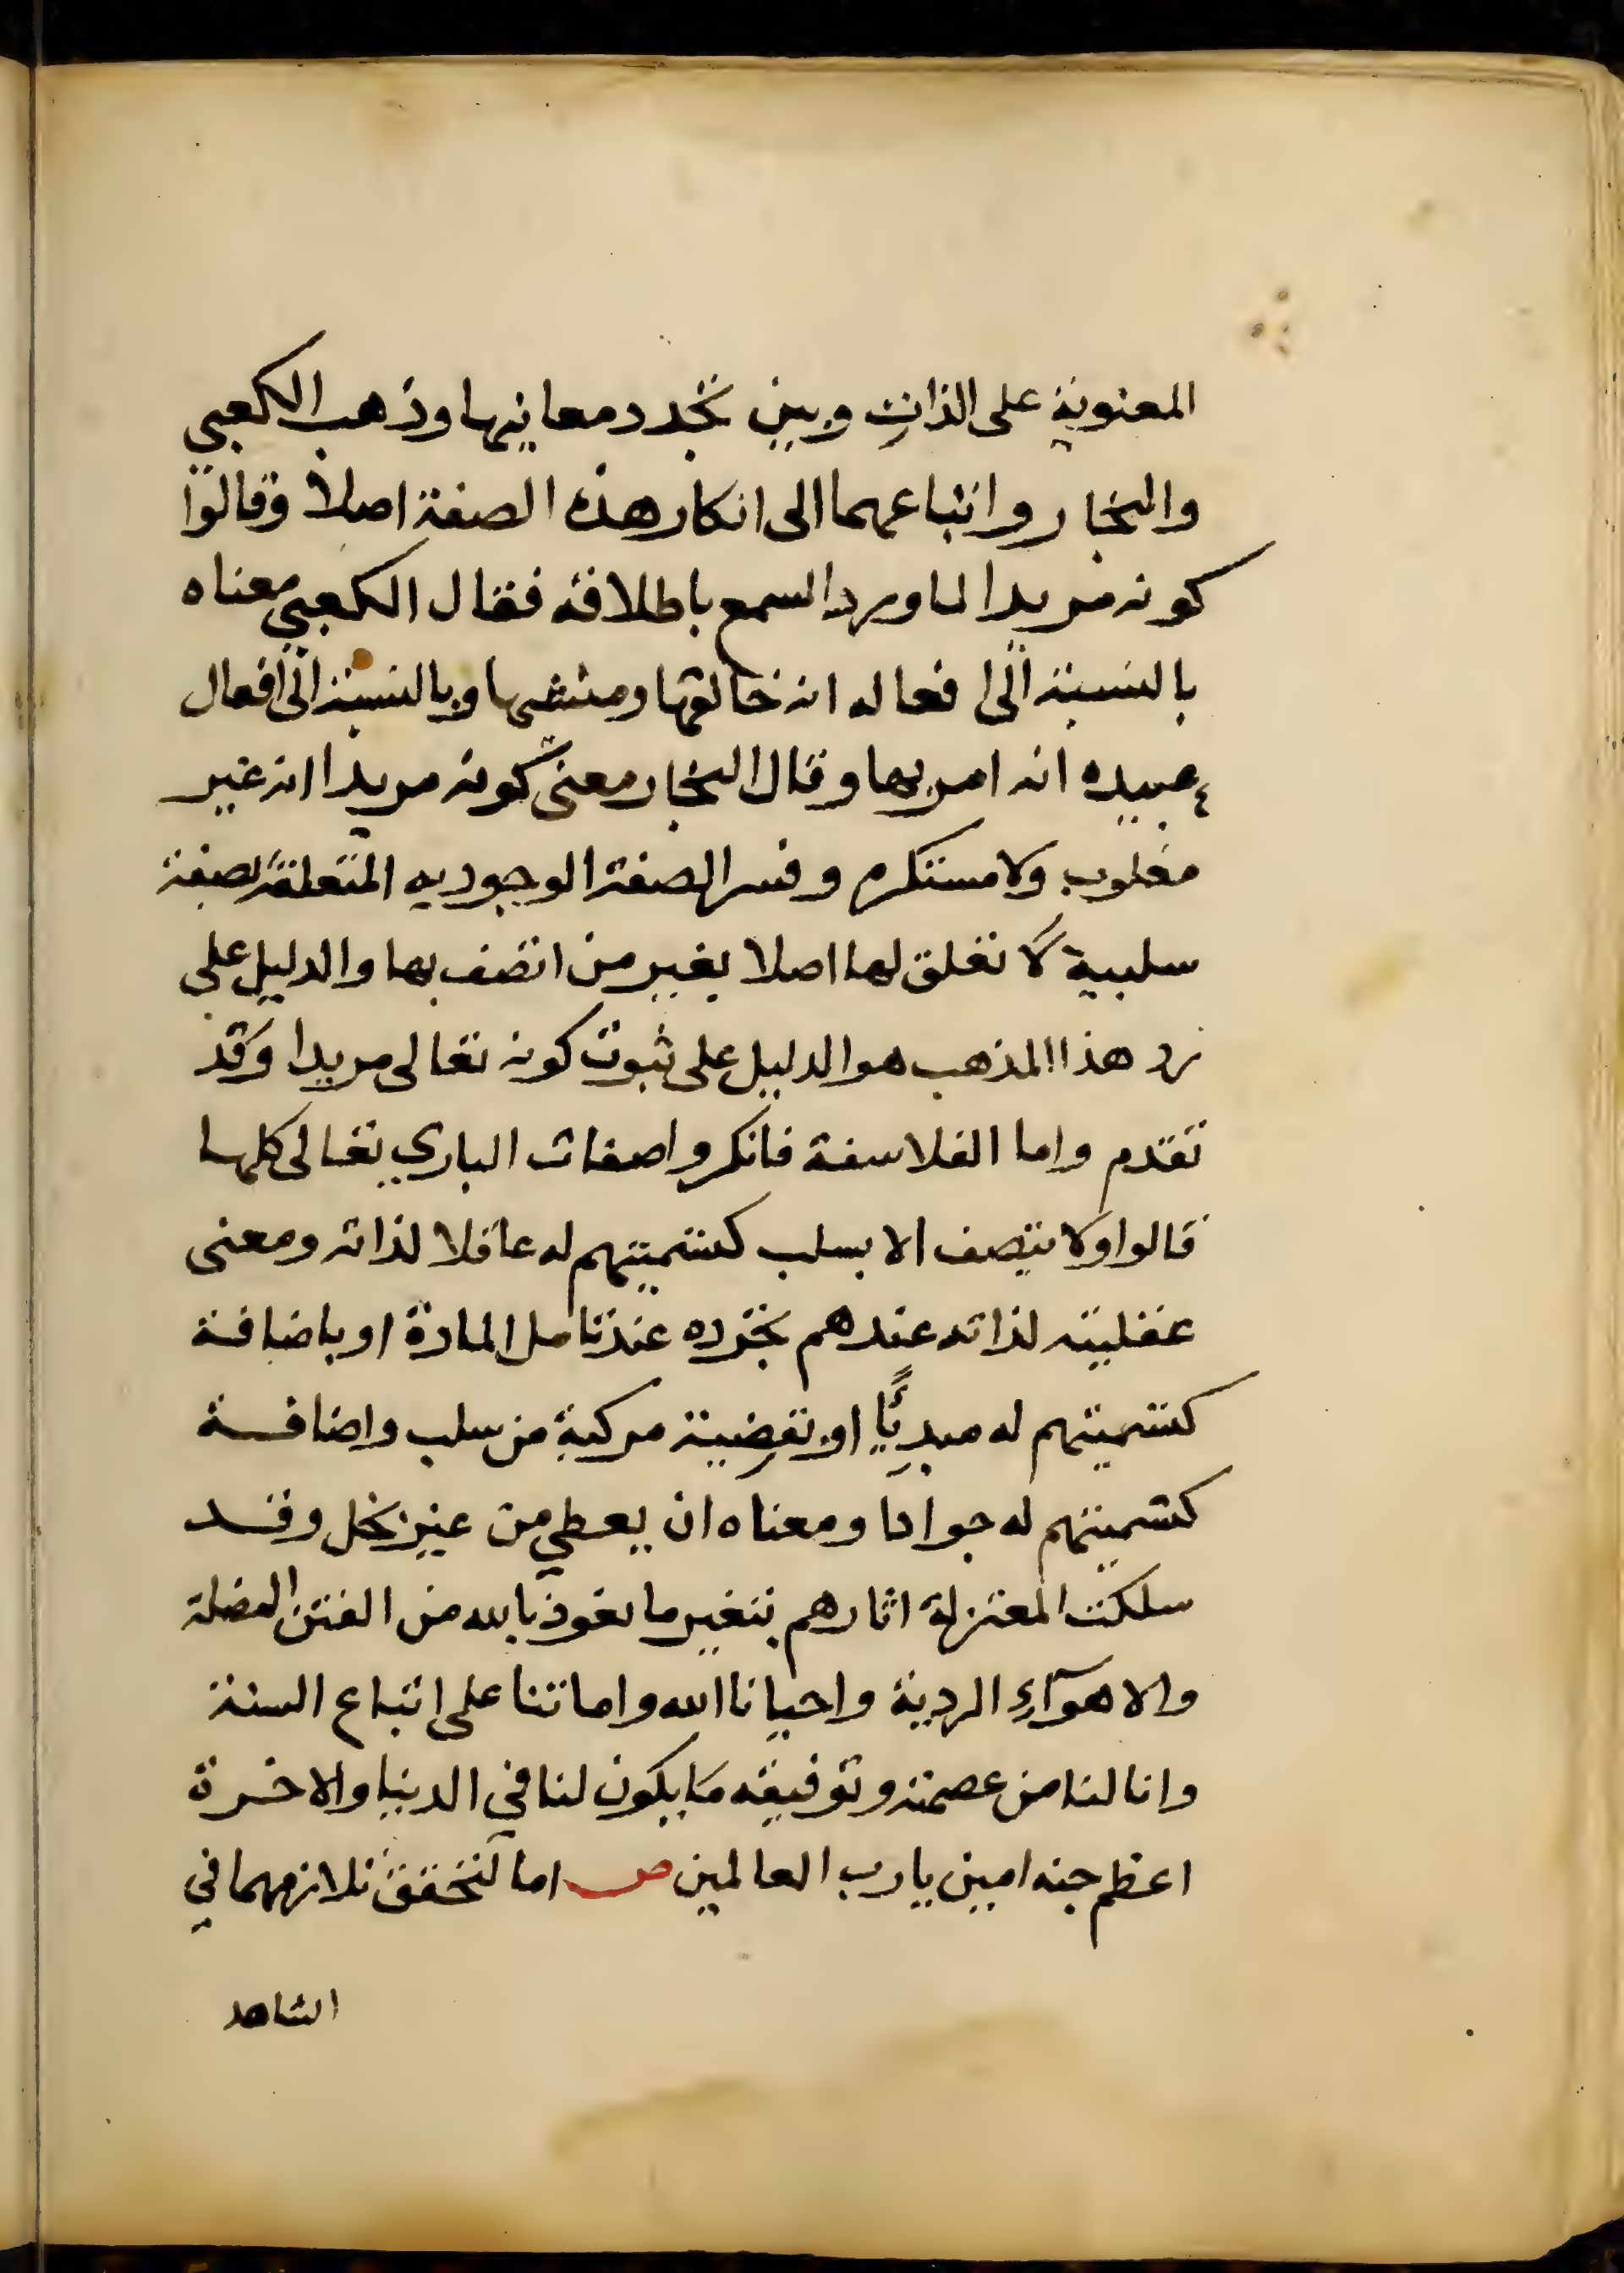 المعنوية على الذات وبين تجدد معانيها وذهب الكعبي
والنجار واتباعهما الى انكار هذه الصفة اصلا وقالوا
كونه مريدا لما ورد السمع باطلاقه فقال الكعبي معناه
بالنسبة الى افعاله انه خالقها ومنشيها وبالنسبة الى افعال
عبيده انه امر بها وقال النجار معنى كونه مريدا انه غير
مغلوب ولا مستكره وفسر الصفة الوجوديه المتعلقة بصفة
سلبية لا تعلق لها اصلا بغير من اتصف بها والدليل على
رد هذا المذهب هو الدليل على ثبوت كونه تعالى مريدا وقد
تقدم واما الفلاسفة فانكروا صفات الباري تعالى كلها
قالوا ولا يتصف الا بسلب كتسميتهم له عاقلا لذاته ومعنى
عقليته لذاته عندهم تجرده عندنا مل المادة او باضافة
كتسميتهم له مبديًا او بقضية مركبة من سلب واضافة
كتسميتهم له جوادا ومعناه ان يعطي من غير بخل وقد
سلكت المعتزلة اثارهم بتغير ما نعوذ بالله من الفتن المضلة
والاهوآء الردية واحيانا الله واماتنا على اتباع السنة
وانالنا من عصمته وتوفيقه ما يكون لنا في الدنيا والاخرة
اعظم جنه امين يا رب العالمين ص اما لتحقق تلازمهما في
الشاهد